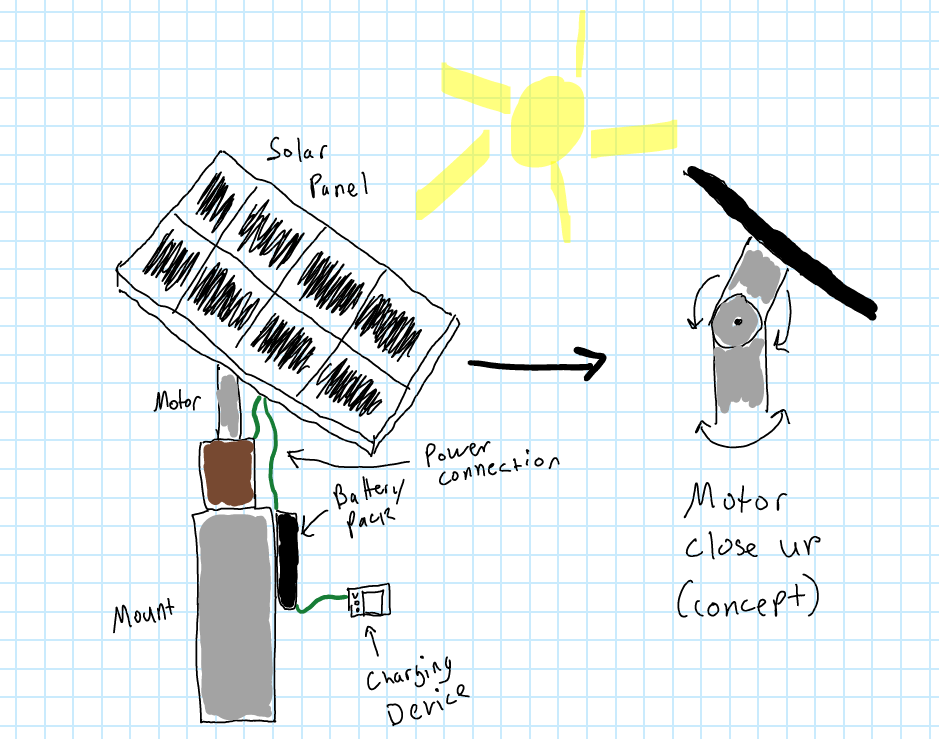 Solar
Panel
Motor
Power
connection
Battery
pack
Mount
Charging
Device
Motor
close up
(concept)